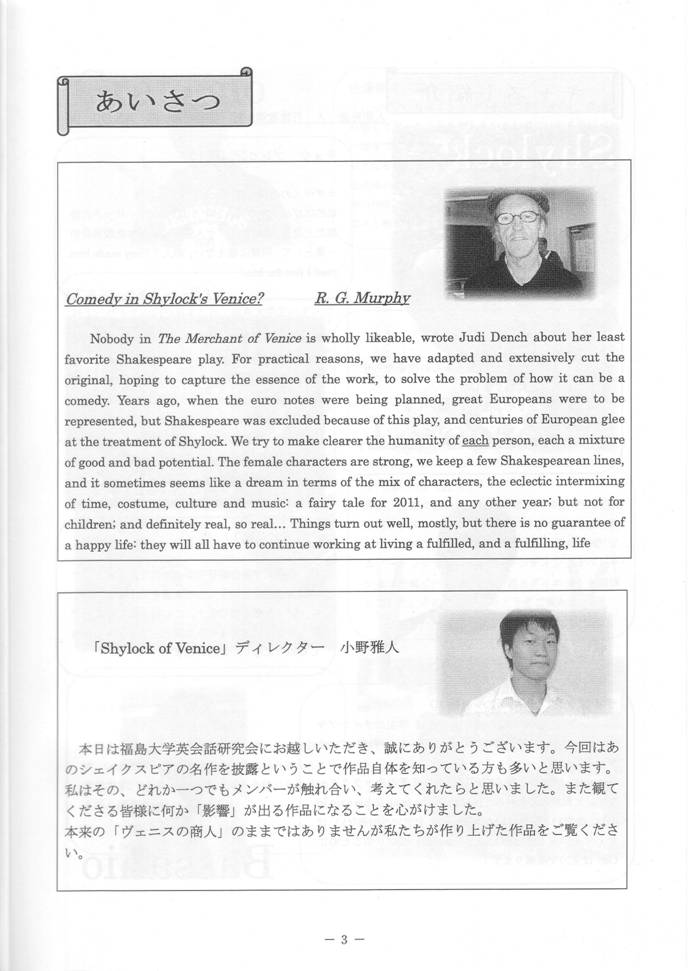 あいさつ
Comedy in Shylock's Venice? R. G. Murphy
Nobody in The Merchant of Venice is wholly likeable, wrote Judi Dench about her least
favorite Shakespeare play. For practical reasons, we have adapted and extensively cut the
original, hoping to capture the essence of the work, to solve the problem of how it can be a
comedy. Years ago, when the euro notes were being planned, great Europeans were to be
represented, but Shakespeare was excluded because of this play, and centuries of European glee
at the treatment of Shylock. We try to make clearer the humanity of each person, each a mixture
of good and bad potential. The female characters are strong, we keep a few Shakespearean lines,
and it sometimes seems like a dream in terms of the mix of characters, the eclectic intermixing
of time, costume, culture and music: a fairy tale for 2011, and any other year; but not for
children; and definitely real, so real… Things turn out well, mostly, but there is no guarantee of
a happy life: they will all have to continue working at living a fulfilled, and a fulfilling, life
「Shylock of Venice」ディレクター 小野雅人
本日は福島大学英会話研究会にお越しいただき、誠にありがとうございます。今回はあ
のシェイクスピアの名作を披露ということで作品自体を知っている方も多いと思います。
私はその、どれか一つでもメンバーが触れ合い、考えてくれたらと思いました。また観て
くださる皆様に何か「影響」が出る作品になることを心がけました。
本来の「ヴェニスの商人」のままではありませんが私たちが作り上げた作品をご覧くださ
い。
− 3 −